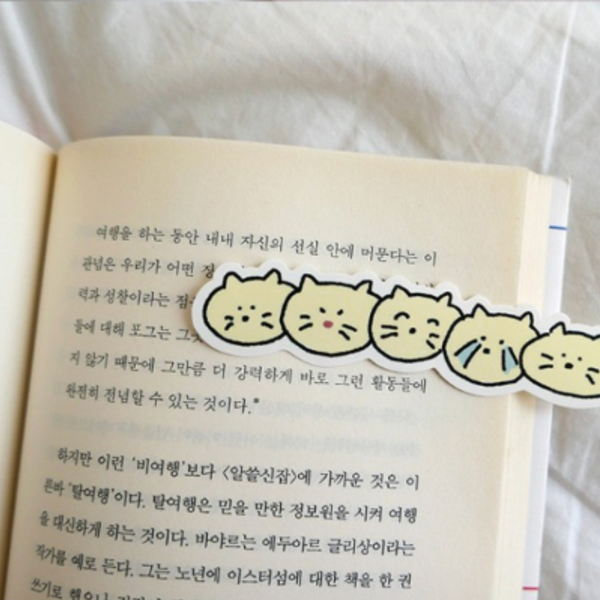 여행을 하는 동안 내내 자신의 선실 안에 머문다는 이
관념은 우리가 어떤
력과 성찰이라는
들에 대해 포그는
지 않기 때문에 그만큼 더 강력하게 바로 그런 활동들에
완전히 전념할 수 있는 것이다.*
하지만 이런 '비여행'보다 〈알쓸신잡〉에 가까운 것은 이
른바 '탈여행'이다. 탈여행은 믿을 만한 정보원을 시켜 여행
을 대신하게 하는 것이다. 바야르는 에두아르 글리상이라는
작가를 예로 든다. 그는 노년에 이스터섬에 대한 책을 한 권
쓰기로